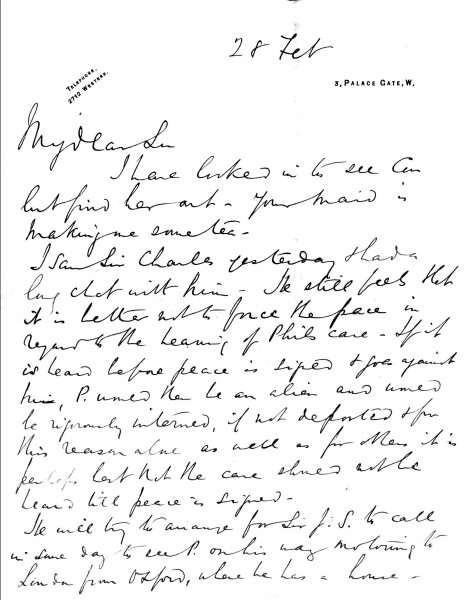 28 Feb
TELEPHONE,
2712 WESTERN.
3, PALACE GATE, W.
My dear Sir
I have looked in to see Con
but find her out - Your maid is
making me some tea -
I saw Sir Charles yesterday & had a
long chat with him - He still feels that
it is better not to force the pace in
regard to the hearing of Phils case - If it
is heard before peace is signed & goes against
him, P. would then be an alien and would
be rigorously interned, if not deported & for
this reason alone as well as for others it is
perhaps best that the case should not be
heard till peace is signed -
He will try to arrange for Sir J. S. to call
in some day to see P. on his way motoring to
London from Oxford, where he has a house -